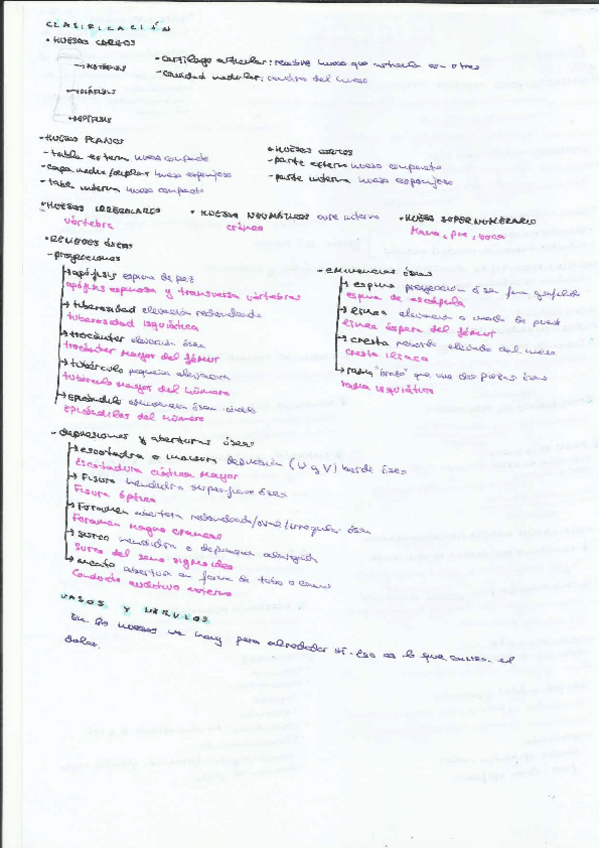 CLASIFICACIÓN
• HUESOS LARGOS
→ METÁFISIS
- cartílago articular: recubre hueso que articula con otros
- cavidad medular: conducto del hueso
→ DIÁFISIS
→ EPÍFISIS
• HUESOS PLANOS
- tabla externa hueso compacto
- capa media/diploe hueso esponjoso
- tabla interna hueso compacto
• HUESOS CORTOS
- parte externa hueso compacto
- parte interna hueso esponjoso
• HUESOS IRREGULARES
vértebra
• HUESOS NEUMÁTICOS aire interno
cráneo
• HUESO SUPERNUMERARIO
Mano, pie,
• RELIEVES ÓSEOS
- proyecciones
→ apófisis espina de pez
apófisis espinosa y transversa vértebras
→ tuberosidad elevación redondeada
tuberosidad isquiática
→ trocánter elevación ósea
trocánter mayor del fémur
→ tubérculo pequeña elevación
tubérculo mayor del húmero
→ epicóndilo eminencia ósea cóndilo
epicóndilos del húmero
- eminencias óseas
→ espina proyección ósea fina
espina de escápula
→ línea elevación a modo de
línea áspera del fémur
→ cresta reborde elevado del hueso
cresta ilíaca
→ rama "brazo" que une dos piezas óseas
rama isquiática
- depresiones y aberturas óseas
→ escotadura o incisura depresión (U y V) borde óseo
Escotadura ciática mayor
→ Fisura hendidura óseo
Fisura óptica
→ Foramen abertura redondeada/oval/irregular ósea
Foramen magno craneal
→ surco hendidura o depresión alargada
Surco del seno sigmoideo
→ meato abertura en forma de tubo o canal
Conducto auditivo externo
VASOS Y NERVIOS
En los huesos no hay pero alrededor sí. Eso es lo que el
dolor.